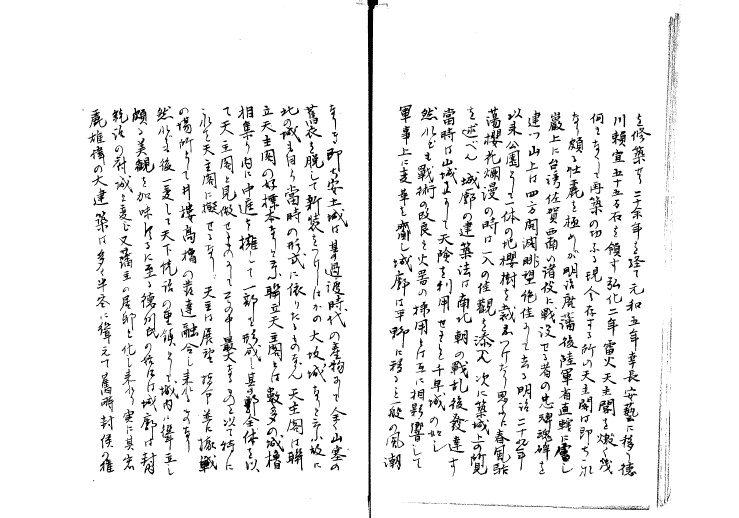 を修築す二十余年を経て元和五年幸長安藝に移り徳
川頼宣五十五万石を領す弘化二年雷火天主閣を燬く幾
何もなくして再築の功ふる現今存する所の天主閣は即ち
なり頗る壮麗を極めしが明治廃藩後陸軍省直轄に属し
巌上に台湾佐賀西南の諸役に戦没せる者の忠魂碑を
建つ山上は四方開濶眺望絶佳にして去る明治二十九年
以来公園として一体の地櫻樹を栽ゑつけたり男女春風駘
蕩櫻花爛漫の時は一入の佳観を添ふ次に築城上の所見
を述べん城廓の建築法は南北朝の戦乱後発達す
當時は山城にして天険を利用せること千早城の如し
然れども戦術の改良と火器の使用とは互に相影響して
軍事上に変革を齎し城廓は平野に移ると一般の風潮
なりき即ち安土城は其の過渡時代の産物にして全く山塞の
舊衣を脱して新装をつけしはかの大坂城なりとす故に
此の城も自ら當時の形式に依りたるものなり天主閣は聯
立天主閣の好標本なりとす聯立天主閣とは数多の城櫓
相集り内に中庭を擁して一郭を形成し其の郭全体を以
て天主閣と見做せるものにしてその中最大なるものを以て特に
天主閣に擬せるなり天主は展望指令並に據戦
の場所にして井樓高櫓の発達融合し来れるものなり
然れども後一変して天下統治の重鎮として城内に聳立し
頗る美観を加味するに至る徳川氏の後には城廓は封
統治の府城と変じ又藩主の居邸と化し来れり実に其宏
麗雄偉の大建築は多く半空に聳えて舊時封侯の権